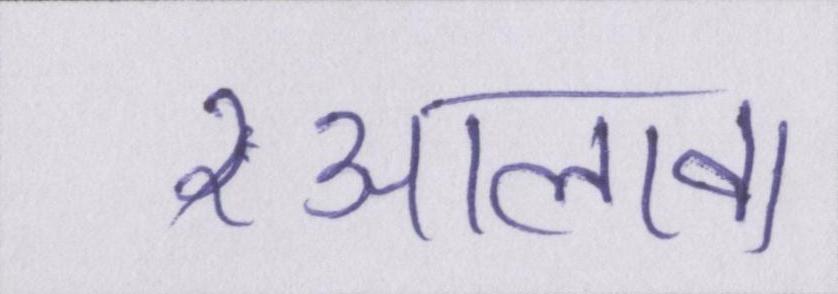 रआलावा